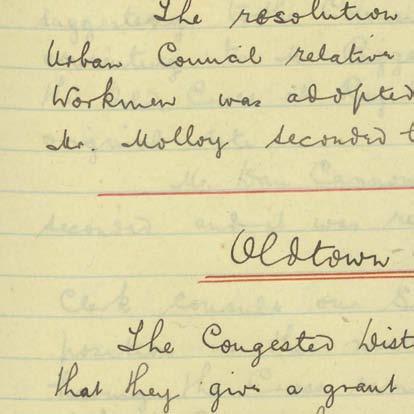 The resolution
Urban Council relative
Workmen was adopted
Mr. Molloy seconded t
Oldtown
The Congested Dist
that they give a grant